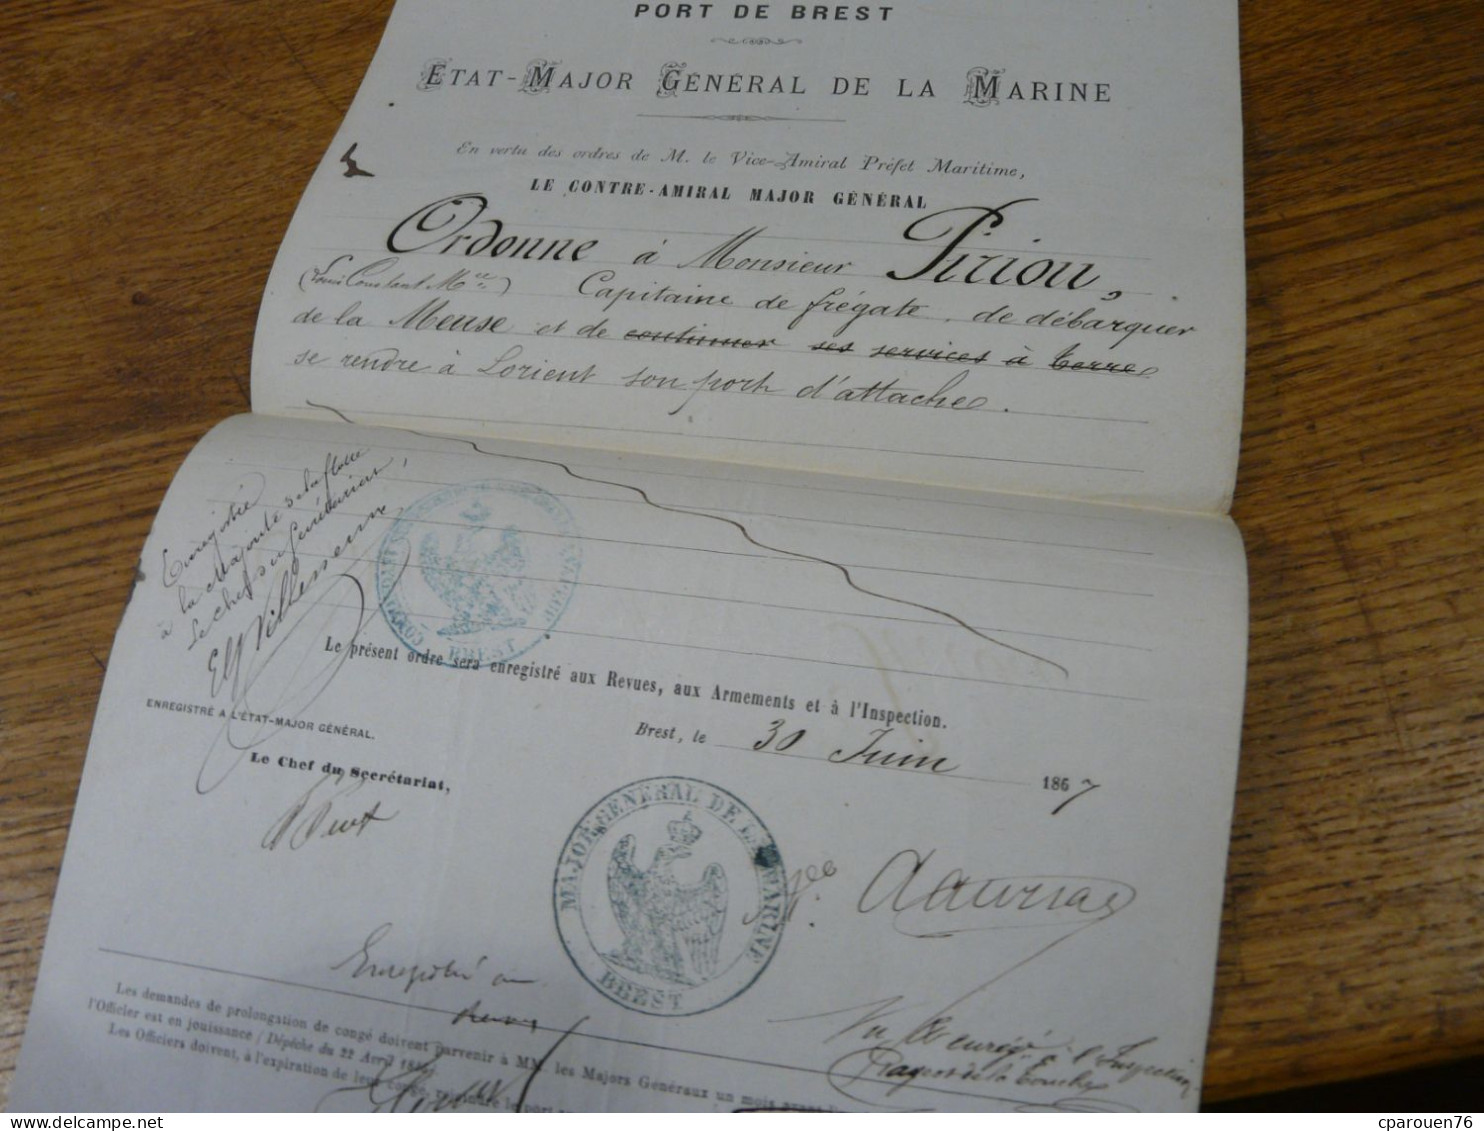 PORT DE BREST
ETAT-MAJOR GÉNÉRAL DE LA MARINE
En vertu des ordres de M. le Vice-Amiral Préfet Maritime,
LE CONTRE-AMIRAL MAJOR GÉNÉRAL
Ordonne à Monsieur Piriou,
(Louis Constant Mce) Capitaine de frégate, de débarquer
de la Meuse et de continuer ses services à terre
se rendre à Lorient son port d'attache.
Enregistrée
à la Majorité de la flotte
Le Chef du Secrétariat,
Villemsenn
BREST
Le présent ordre sera enregistré aux Revues, aux Armements et à l'Inspection.
ENREGISTRÉ A L'ÉTAT-MAJOR GÉNÉRAL.
Brest, le 30 Juin 1867
Le Chef du Secrétariat,
MAJOR GÉNÉRAL DE LA MARINE
BREST
Enregistré au
Vu & enreg. à l'Inspection
Les demandes de prolongation de congé doivent parvenir à MM. les Majors Généraux un mois avant
l'Officier est en jouissance (Dépêche du 22 Avril
Les Officiers doivent, à l'expiration de leur congé, rejoindre le port
cparouen76